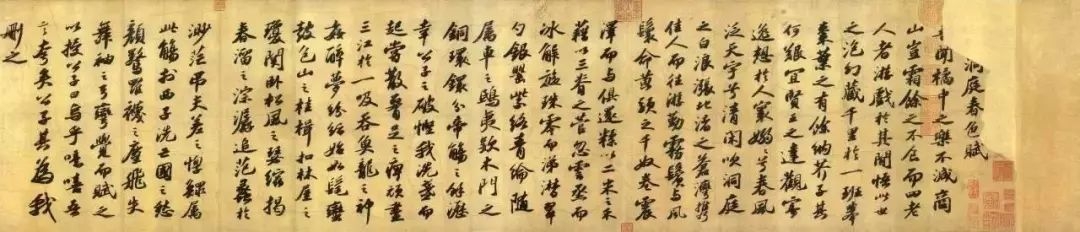 洞庭春色賦
聞橘中之樂不減商
山豈霜餘之不食而四老
人者游戲於其間悟此世
之泡幻藏千里於一班舉
棗葉之有餘納芥子其
何艱宜賢王之達觀寄
逸想於人寰嫋嫋兮春風
泛天宇兮清閑吹洞庭
之白浪漲北渚之蒼灣攜
佳人而往游勤霧鬢與風
鬟命黃頭之千奴卷震
澤而與俱還糅以二米之禾
藉以三脊之菅忽雲烝而
冰解旋珠零而涕潸翠
勺銀罌紫絡青綸隨
屬車之鴟夷款木門之
銅鐶分帝觴之餘瀝
幸公子之破慳我洗盞而
起嘗散腰足之痺頑盡
三江於一吸吞魚龍之神
姦醉夢紛紜始如髦蠻
鼓包山之桂楫扣林屋之
瓊關臥松風之瑟縮揭
春溜之淙潺追范蠡於
渺茫弔夫差之惸鰥屬
此觴於西子洗亡國之愁
顏驚羅襪之塵飛失
舞袖之弓彎覺而賦之
以授公子曰烏乎噫嘻吾
言夸矣公子其為我
刪之